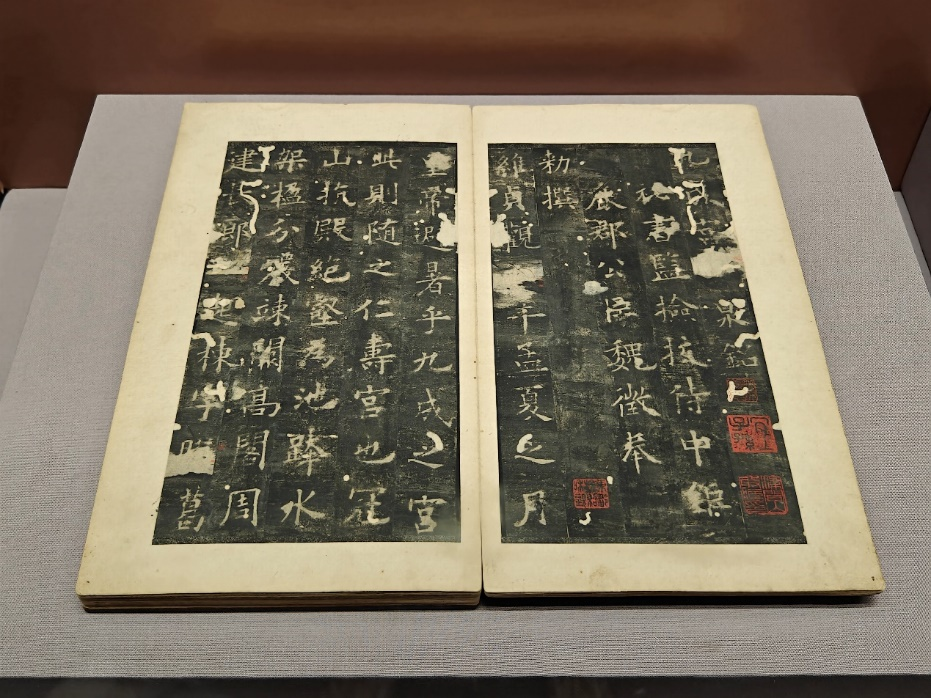 九成宮泉銘
祕書監檢挍侍中鉅
鹿郡公臣魏徵奉
勑撰
維貞觀年孟夏之月
皇帝避暑乎九成之宮
此則隨之仁壽宮也冠
山抗殿絕壑為池跨水
架楹分巖竦闕高閣周
建長廊起棟宇膠葛